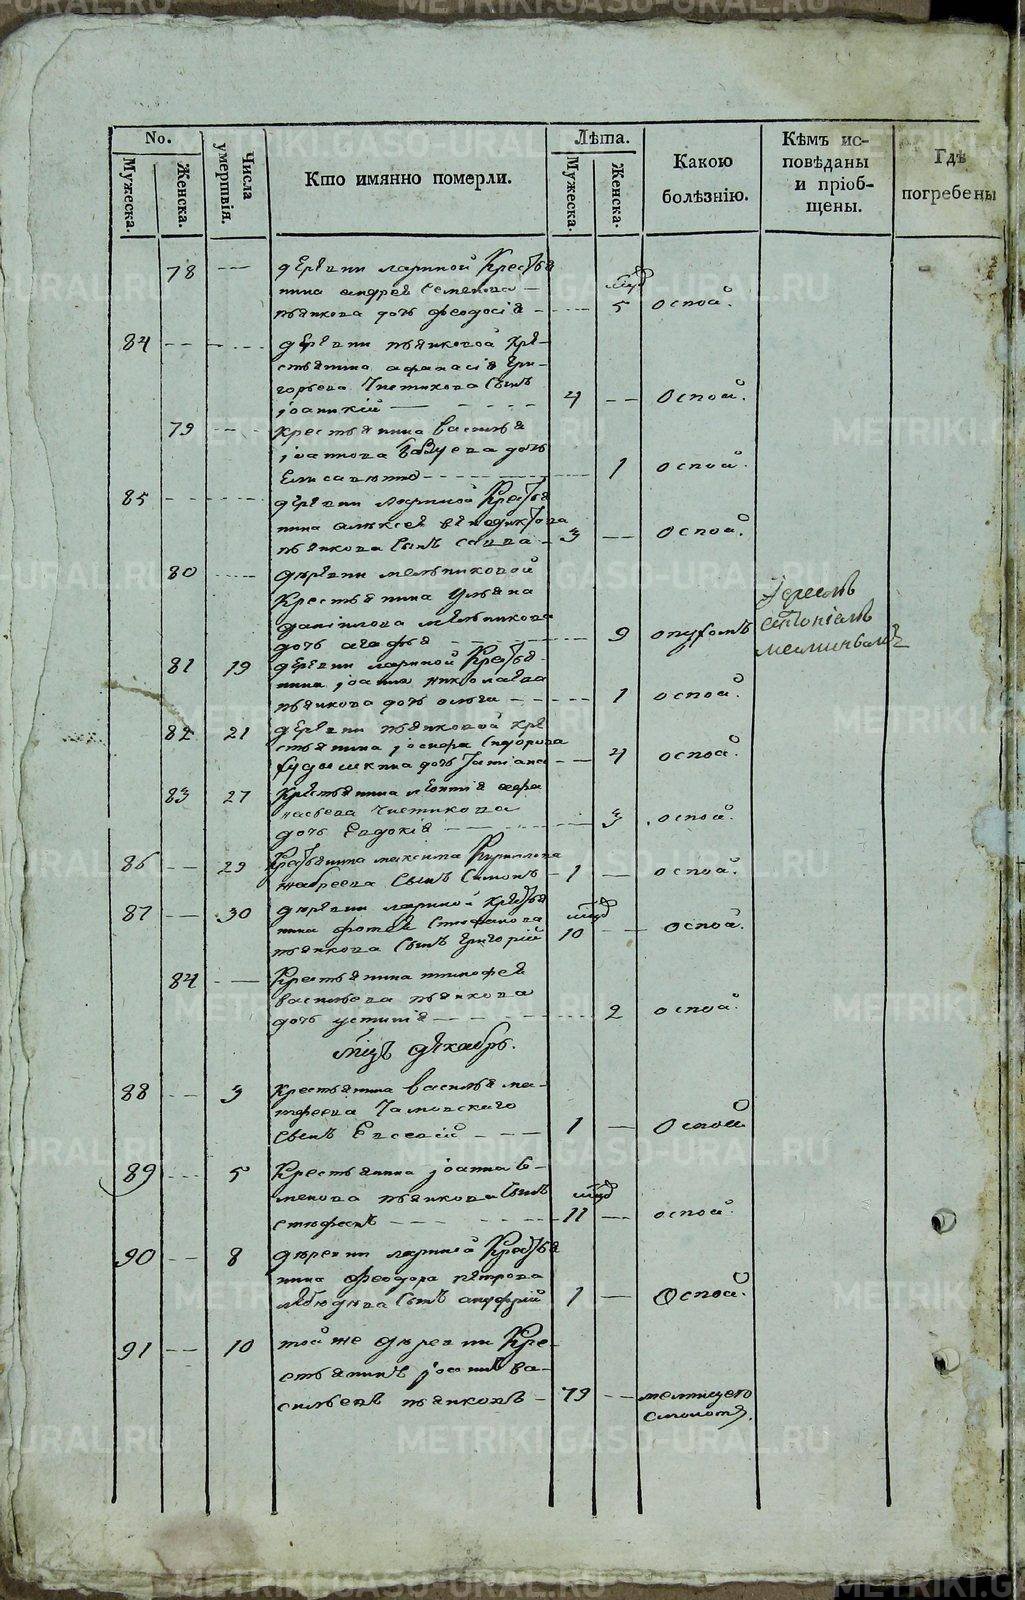 No.
Мужеска.
Женска.
Числа умертвія.
Кто имянно померли.
Лѣта.
Мужеска.
Женска.
Какою болѣзнію.
Кѣмъ ис-
повѣданы
и пріоб-
щены.
Гдѣ
погребены
78 — деревни лариной Крестья
нина андрея Семенова —
пьянкова дочь феодосія — 5 оспой.
84 — — деревни пьянковой кре-
стьянина афанасія Гри-
горьева Чистякова сынъ
іоаникій — 4 — Оспой.
79 — крестьянина василья
іоаннова дочь
Елисавета 1 оспой.
85 — деревни лариной Крестья
нина алексея венедиктова
пьянкова сынъ савва — 3 — Оспой.
80 — деревни мельниковой
Крестьянина Ульяна
даниловa мельникова
дочь агафья 9 опухолью
Іереемъ
81 19 деревни лариной Крестья-
нина іоанна николаева
пьянкова дочь ольга — 1 оспой.
82 21 деревни пьянковой кре
стьянина іосифа Сидорова
дочь Татіана — 4 оспой
83 27 Крестьянина леонтія афа
насьева Чистякова
дочь Евдокія — 3 оспой.
86 — 29 Крестьянина максима Кириллова
сынъ Симонъ — 1 — оспой.
87 — 30 деревни лариной крестья
нина фотея Стефанова
пьянкова сынъ григорій 10 — Оспой.
84 — Крестьянина тимофея
васильева пьянкова
дочь устинія — 2 оспой.
мцъ декабрь.
88 — 3 крестьянина василья ма-
тфеева
сынъ Евсевій — 1 — Оспой
89 — 5 Крестьянина іоанна се-
менова пьянкова сынъ
стефанъ — 11 — оспой.
90 — 8 деревни лариной Крестья
нина феодора петрова
сынъ ануфрій 1 — Оспой.
91 — 10 той же деревни Кре-
стьянинъ іоаннъ ва-
сильевъ пьянковъ — 79 —